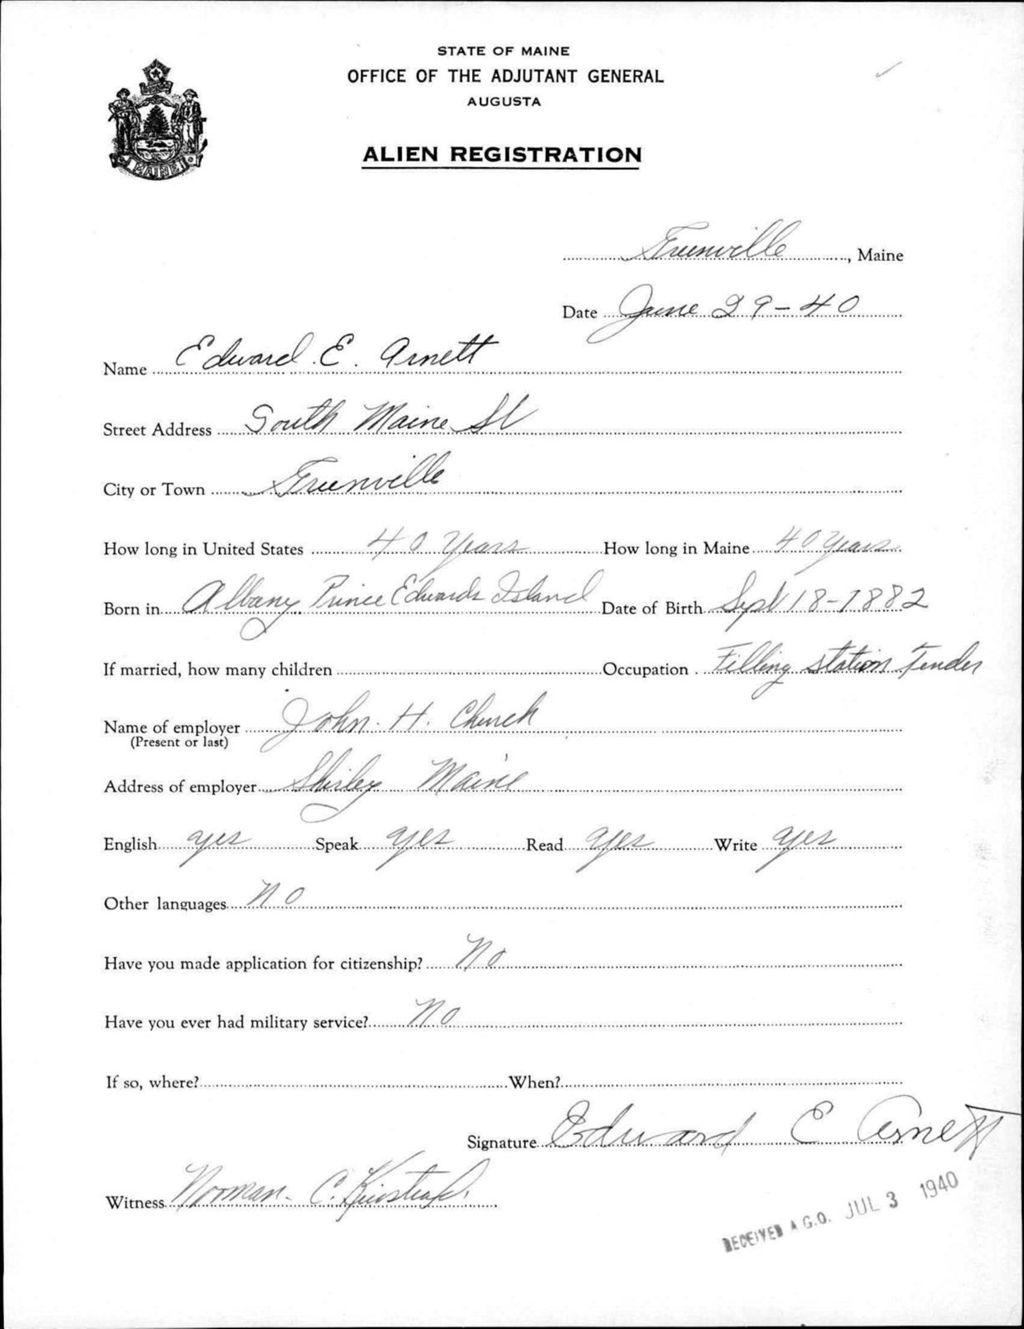 STATE OF MAINE
OFFICE OF THE ADJUTANT GENERAL
AUGUSTA
ALIEN REGISTRATION
MAINE
Greenville, Maine
Date June 29-40
Name Edward E. Arnett
Street Address South Maine St
City or Town Greenville
How long in United States 40 Years How long in Maine 40 Years
Born in Albany Prince Edwards Island Date of Birth Sept 18-1882
If married, how many children Occupation Filling station Tender
Name of employer John. H. Church
(Present or last)
Address of employer Shirley Maine
English yes Speak yes Read yes Write yes
Other languages No
Have you made application for citizenship? No
Have you ever had military service? No
If so, where? When?
Signature Edward E Arnett
Witness Norman. C.
RECEIVED A.G.O. JUL 3 1940